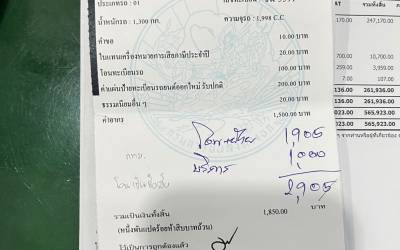 ประเภทรถ : 01
น้ำหนักรถ : 1,300 กก. ความจุรถ : 1,998 C.C
คำขอ 10.00 บาท
ใบแทนเครื่องหมายการเสียภาษีประจำปี 20.00 บาท
โอนทะเบียนรถ 100.00 บาท
ค่าแผ่นป้ายทะเบียนรถยนต์ออกใหม่ รับปกติ 200.00 บาท
ธรรมเนียมอื่น ๆ 20.00 บาท
ค่าอากร 1,500.00 บาท
1,905
กทม. บริการ 1,000
2,905
รวมเป็นเงินทั้งสิ้น 1,850.00 บาท
(หนึ่งพันแปดร้อยห้าสิบบาทถ้วน)
ไว้เป็นการถูกต้องแล้ว
รวมทั้งสิ้น
170.00 247,170.00
700.00 10,700.00
259.00 3,959.00
7.00 107.00
136.00 261,936.00
136.00 261,936.00
023.00 565,923.00
023.00 565,923.00